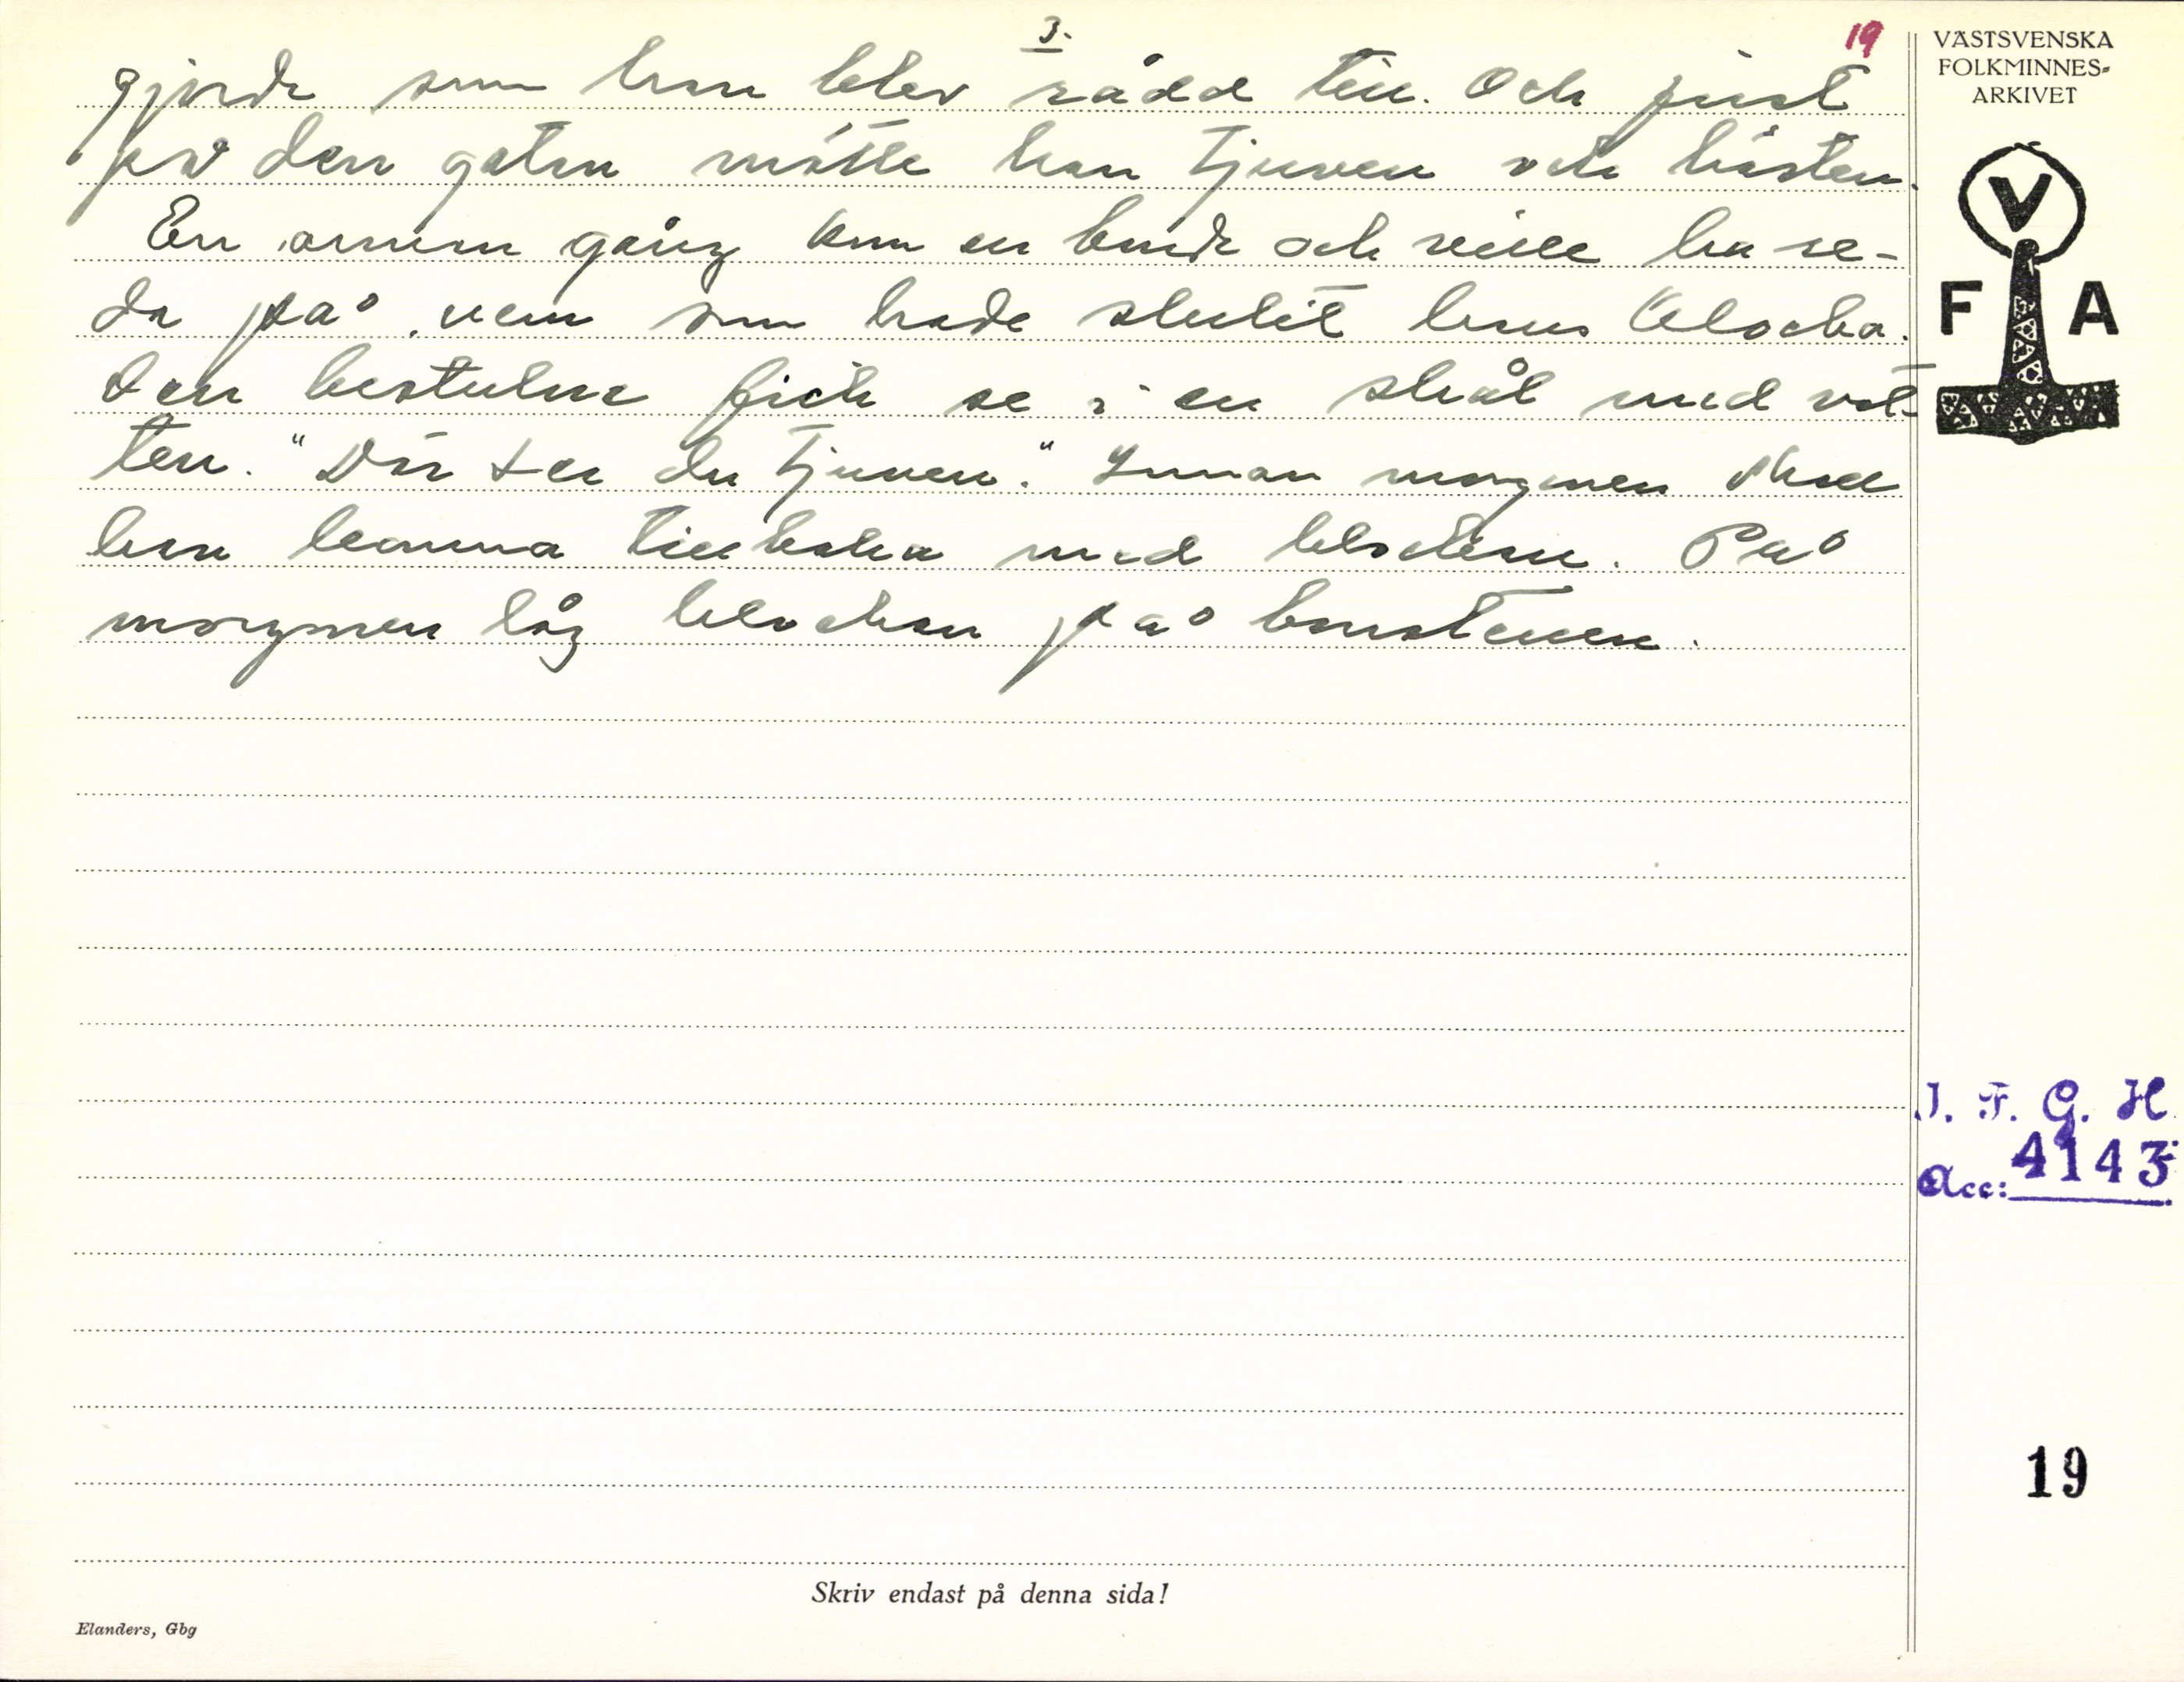 3.
19
gjorde som han blev rådd till. Och just
på den gatan mötte han tjuven och hästen.
En annan gång kom en bonde och ville ha re-
da på vem som hade stulit hans klocka.
Den bestulne fick se i en skål med vat-
ten. "Där ser du tjuven." Innan morgonen skall
han komma tillbaka med klockan. På
morgonen låg klockan på brostenen.
VÄSTSVENSKA
FOLKMINNES-
ARKIVET
V
F A
I. F. G. H.
Acc: 4143
19
Skriv endast på denna sida!
Elanders, Gbg